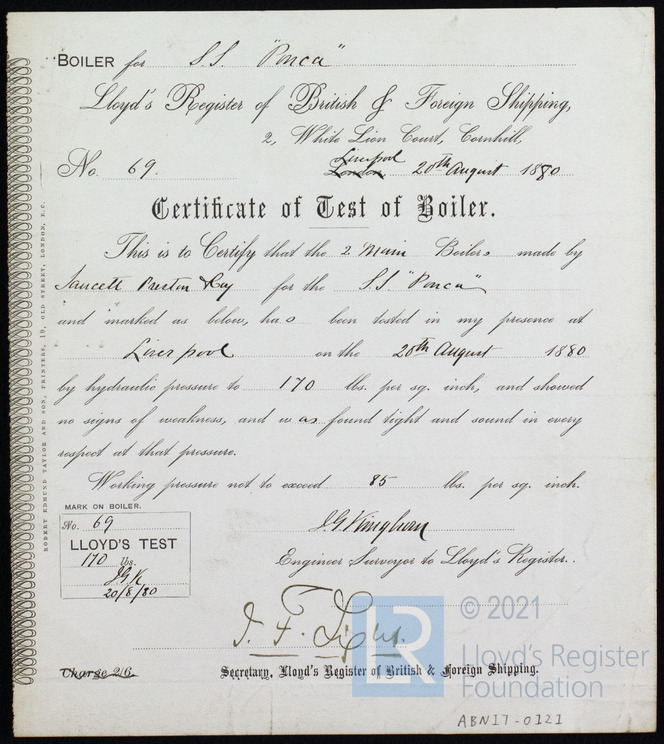 BOILER for S.S. "Ponca"
Lloyd's Register of British & Foreign Shipping,
2, White Lion Court, Cornhill,
Liverpool
No. 69. London 20th August 1880
Certificate of Test of Boiler.
This is to Certify that the 2 Main Boilers made by
Fawcett Preston & Coy for the S.S. "Ponca"
and marked as below, has been tested in my presence at
Liverpool on the 20th August 1880
by hydraulic pressure to 170 lbs. per sq. inch, and showed
no signs of weakness, and was found tight and sound in every
respect at that pressure.
Working pressure not to exceed 85 lbs. per sq. inch.
MARK ON BOILER.
No. 69
LLOYD'S TEST
170 lbs.
J.G.K.
20/8/80
J G Kinghorn
Engineer Surveyor to Lloyd's Register.
Charge 2/6.
Secretary, Lloyd's Register of British & Foreign Shipping.
ROBERT EDMUND TAYLOR AND SON, PRINTERS, 19, OLD STREET, LONDON, E.C.
LR
© 2021
Lloyd's Register
Foundation
ABN17-0121